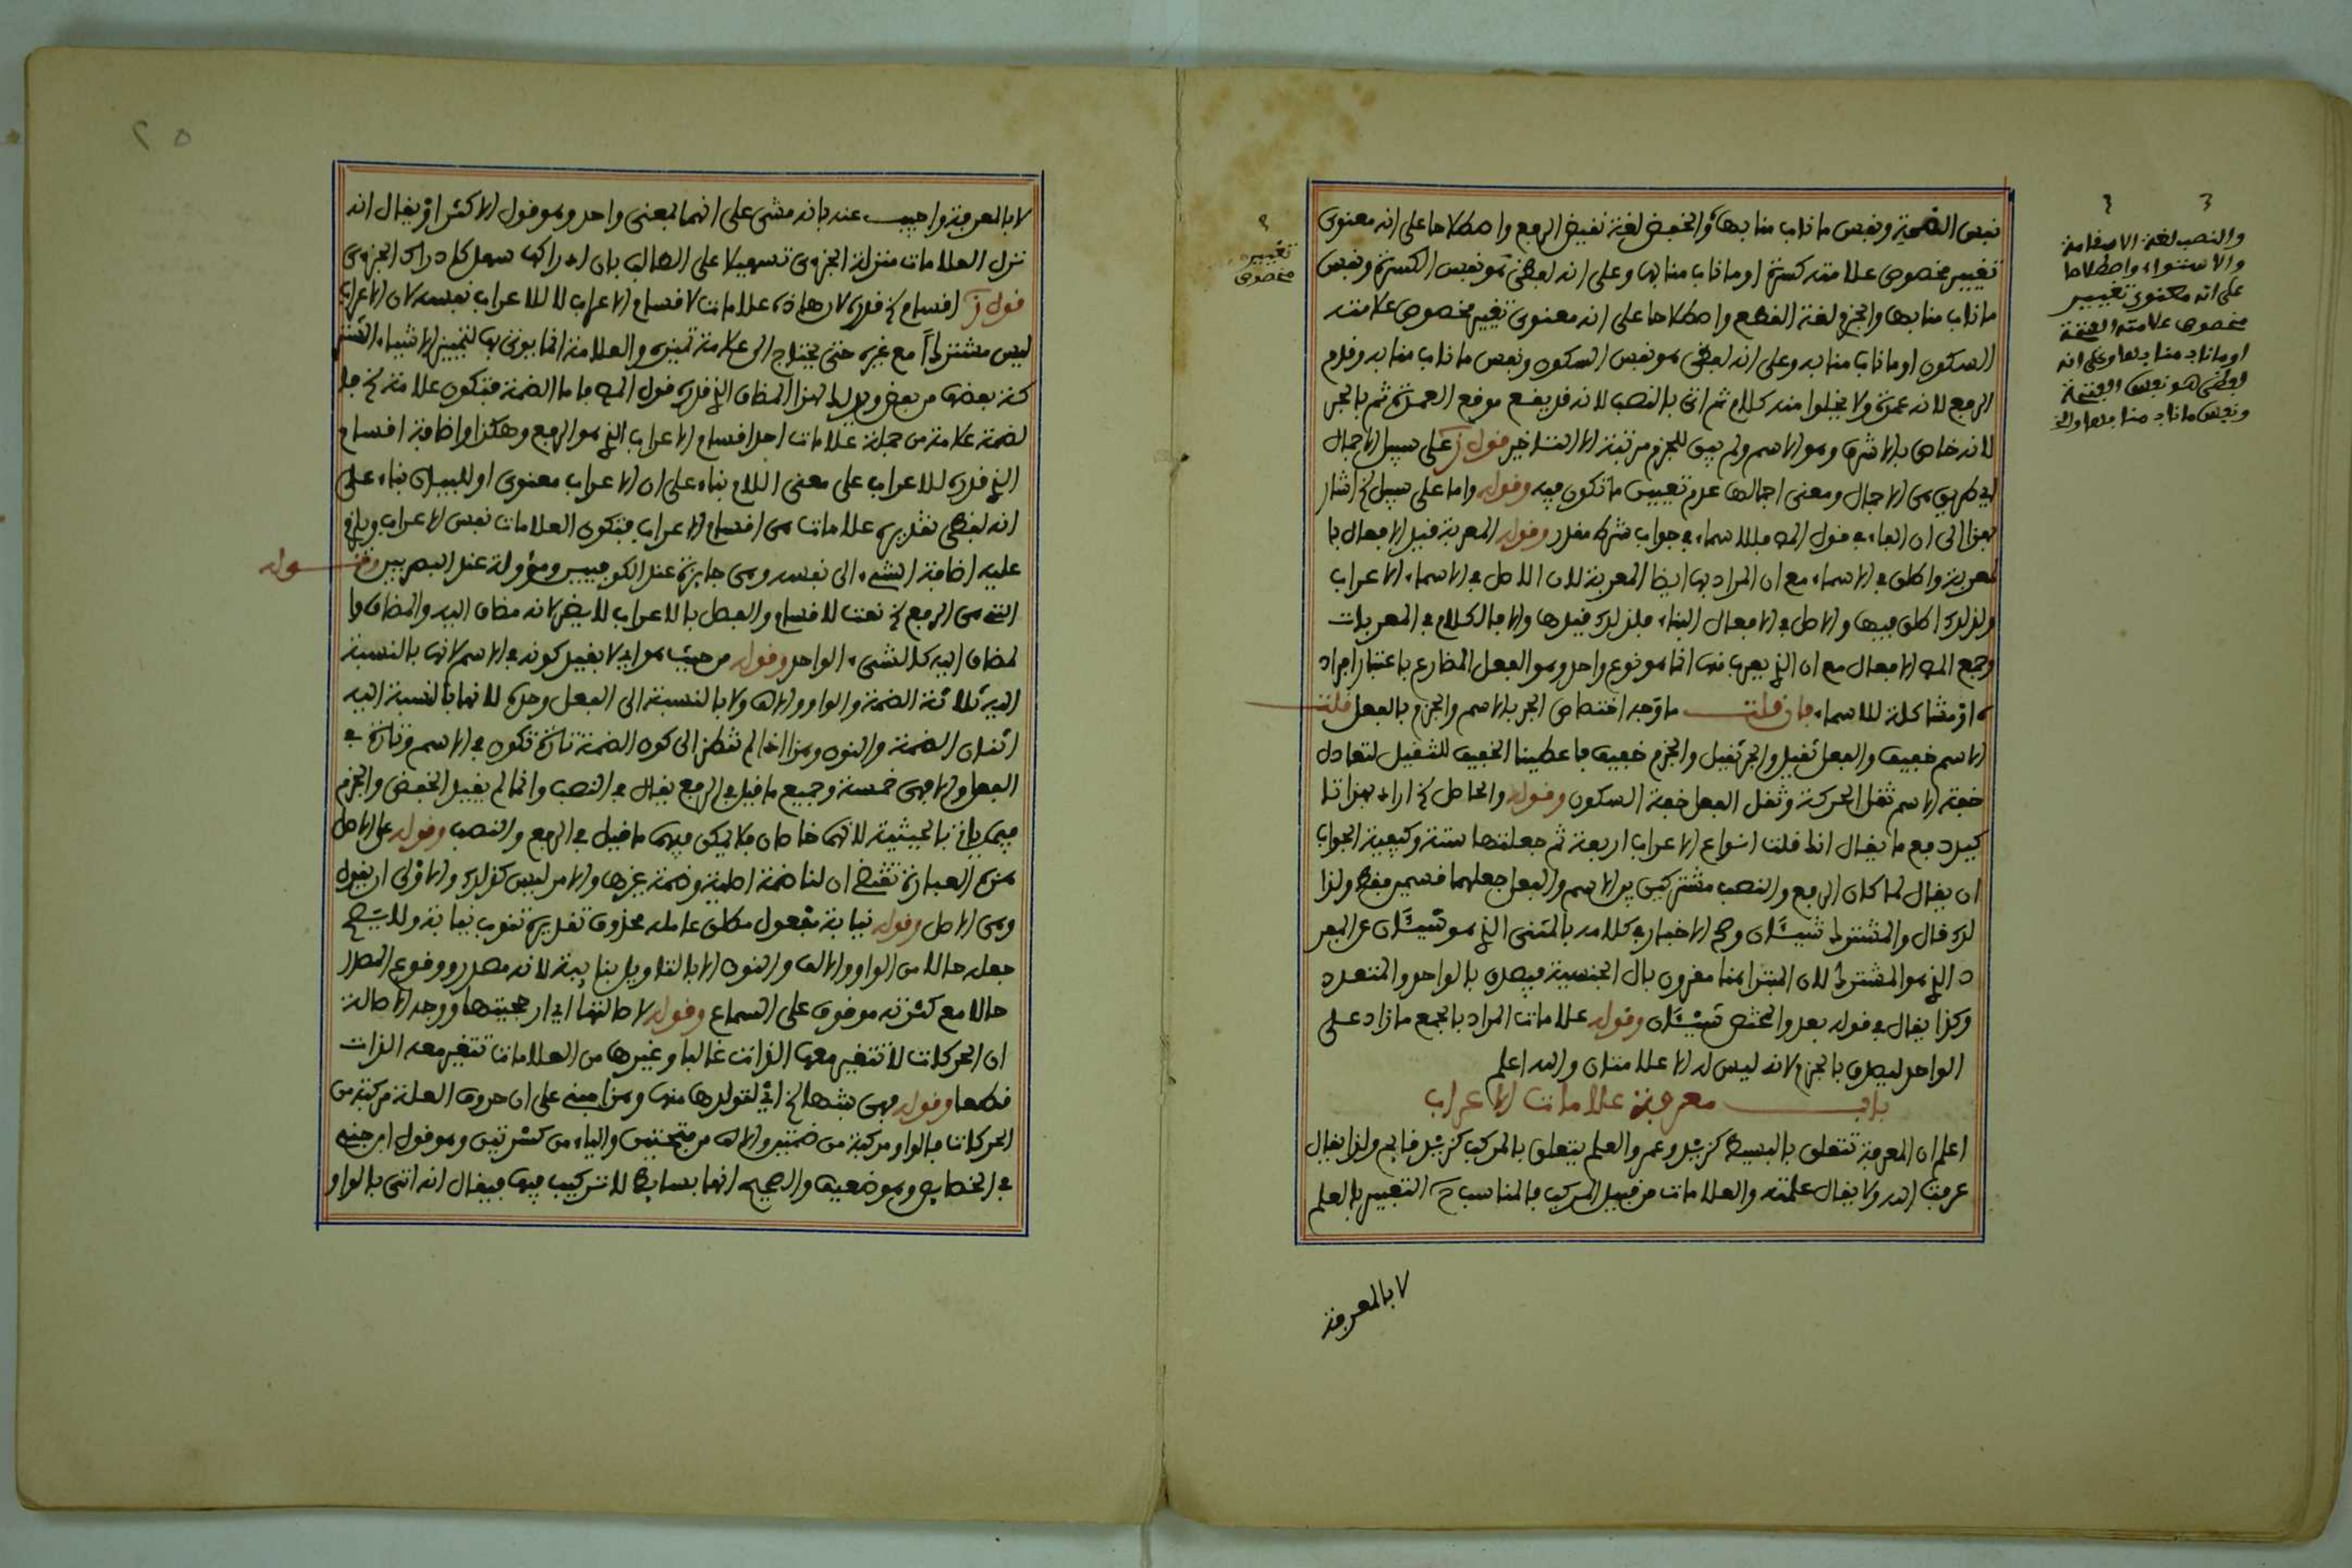 نفس الضمة ونفس ما ناب منابها والخفض لغة نقيض الرفع واصطلاحا على انه معنوى
تغيير مخصوص علامته كسرة او ما ناب منابها وعلى انه لفظى هو نفس الكسرة ونفس
ما ناب منابها والجزم لغة القطع واصطلاحا على انه معنوى تغيير مخصوص علامته
السكون او ما ناب منابه وعلى انه لفظى هو نفس السكون ونفس ما ناب منابه وقدم
الرفع لانه عمدة ولا يخلوا منه كلام ثم اتى بالنصب لانه قد يقع موقع العمدة ثم بالجر
لانه خاص بالاشرف وهو الاسم ولم يبق للجزم مرتبة الا التاخير قول ز على سبيل الاجمال
اى طريق هى الاجمال ومعنى اجمالها عدم تعيين ما تكون فيه وقوله واما على سبيل الخ اشار
بهذا الى ان الفاء فى قول المص فللاسماء فى جواب شرط مقدر وقوله المعربة قبل الافعال بالـ
معربة واطلق فى الاسماء مع ان المراد بها ايضا المعربة لان الاصل فى الاسماء الاعراب
ولذلك اطلق فيها والاصل فى الافعال البناء فلذلك قيدها والا فالكلام فى المعربات
وجمع المص الافعال مع ان الذى يعرب منها انما هو نوع واحد وهو الفعل المضارع باعتبار افراد
ه او مشاكلة للاسماء فان قلت ما وجه اختصاص الجر بالاسم والجزم بالفعل قلت
الاسم خفيف والفعل ثقيل والجر ثقيل والجزم خفيف فاعطينا الخفيف للثقيل لتعادل
خفة الاسم ثقل الحركة وثقل الفعل خفة السكون وقوله والحاصل الخ اراد بهذا تا
كيد دفع ما يقال انك قلت انواع الاعراب اربعة ثم جعلتها ستة وكيفية الجواب
ان يقال لما كان الرفع والنصب مشتركين بين الاسم والفعل جعلهما قسمين فقط ولذا
لك قال والمشترط شيئان وصح الاخبار فى كلامه بالمثنى الذى هو شيئان عن المفر
د الذى هو المشترط لان المبتدا هنا مقرون بال الجنسية فيصدق بالواحد والمتعدد
وكذا يقال فى قوله بعد والمختص شيئان وقوله علامات المراد بالجمع ما زاد على
الواحد ليصدق بالجزم لانه ليس له الا علامتان والله اعلم
باب معرفة علامات الاعراب
اعلم ان المعرفة تتعلق بالبسيط كزيد وعمر والعلم يتعلق بالمركب كزيد قايم ولذا يقال
عرفت الله ولا يقال علمته والعلامات من قبيل المركب فالمناسب ح التعبير بالعلم
لا بالمعرفة
والنصب لغة الاستقامة
والاستواء واصطلاحا
على انه معنوى تغيير
مخصوص علامته الفتحة
او ما ناب منابها وعلى انه
لفظى هو نفس الفتحة
ونفس ما ناب منابها والخ
تغيير
مخصوص
٢٥
لا بالمعرفة واجيب عنه بانه مشى على انهما بمعنى واحد وهو قول الاكثر او يقال انه
نزل العلامات منزلة الجزءى تسهيلا على الطالب بان ادراكها سهل كادراك الجزءى
قول ز اقسام الخ قدره لان هاذه علامات لاقسام الاعراب لا للاعراب نفسه لان الاعراب
ليس مشتركا مع غيره حتى يحتاج الى علامة تميزه والعلامة انما يوتى بها لتمييز الاشياء المشتر
كة بعضها من بعض ويدل لهذا المضاف الذى قدره قول المص فاما الضمة فتكون علامة الخ فا
لضمة علامة من جملة علامات احد اقسام الاعراب الذى هو الرفع وهكذا واضافة اقسام
الذى قدره للاعراب على معنى اللام بناء على ان الاعراب معنوى او للبيان بناء على
انه لفظى تقديره علامات هى اقسام الاعراب فتكون العلامات نفس الاعراب ويلزم
عليه اضافة الشىء الى نفسه وهى جايزة عند الكوفيين ومؤولة عند البصريين وقوله
التى هى الرفع الخ نعت للاقسام والفصل بالاعراب لا يضر لانه مضاف اليه والمضاف وا
لمضاف اليه كالشىء الواحد وقوله من حيث هو اى لا بقيد كونه فى الاسم لانها بالنسبة
اليه ثلاثة الضمة والواو والالف ولا بالنسبة الى الفعل وحده لانها بالنسبة اليه
اثنان الضمة والنون وهذا اذا لم تنظر الى كون الضمة تارة تكون فى الاسم وتارة فى
الفعل والا فهى خمسة وجميع ما قيل فى الرفع يقال فى النصب وانما لم يقيد الخفض والجزم
فيما ياتى بالحيثية لانهما خاصان فلا يمكن فيهما ما قيل فى الرفع والنصب وقوله على الاصل
هذه العبارة تقتضى ان لنا ضمة اصلية وضمة غيرها والامر ليس كذلك والاولى ان يقول
وهى الاصل وقوله نيابة مفعول مطلق عامله محذوف تقديره تنوب نيابة ولا يصح
جعله حالا من الواو والالف والنون الا بالتاويل بنايبة لانه مصدر ووقوع المصدر
حالا مع كثرته موقوف على السماع وقوله لاصالتها اى ارجحيتها ووجه الاصالة
ان الحركات لا تتغير معها الذات غالبا وغيرها من العلامات تتغير معه الذات
قطعا وقوله فهى بنتها الخ اى لتولدها منها وهذا مبنى على ان حروف العلة مركبة من
الحركات فالواو مركبة من ضمتين والالف من فتحتين والياء من كسرتين وهو قول ابن جنى
فى الخصايص وهو ضعيف والصحيح انها بسايط لا تركيب فيها فيقال انه اتى بالواو